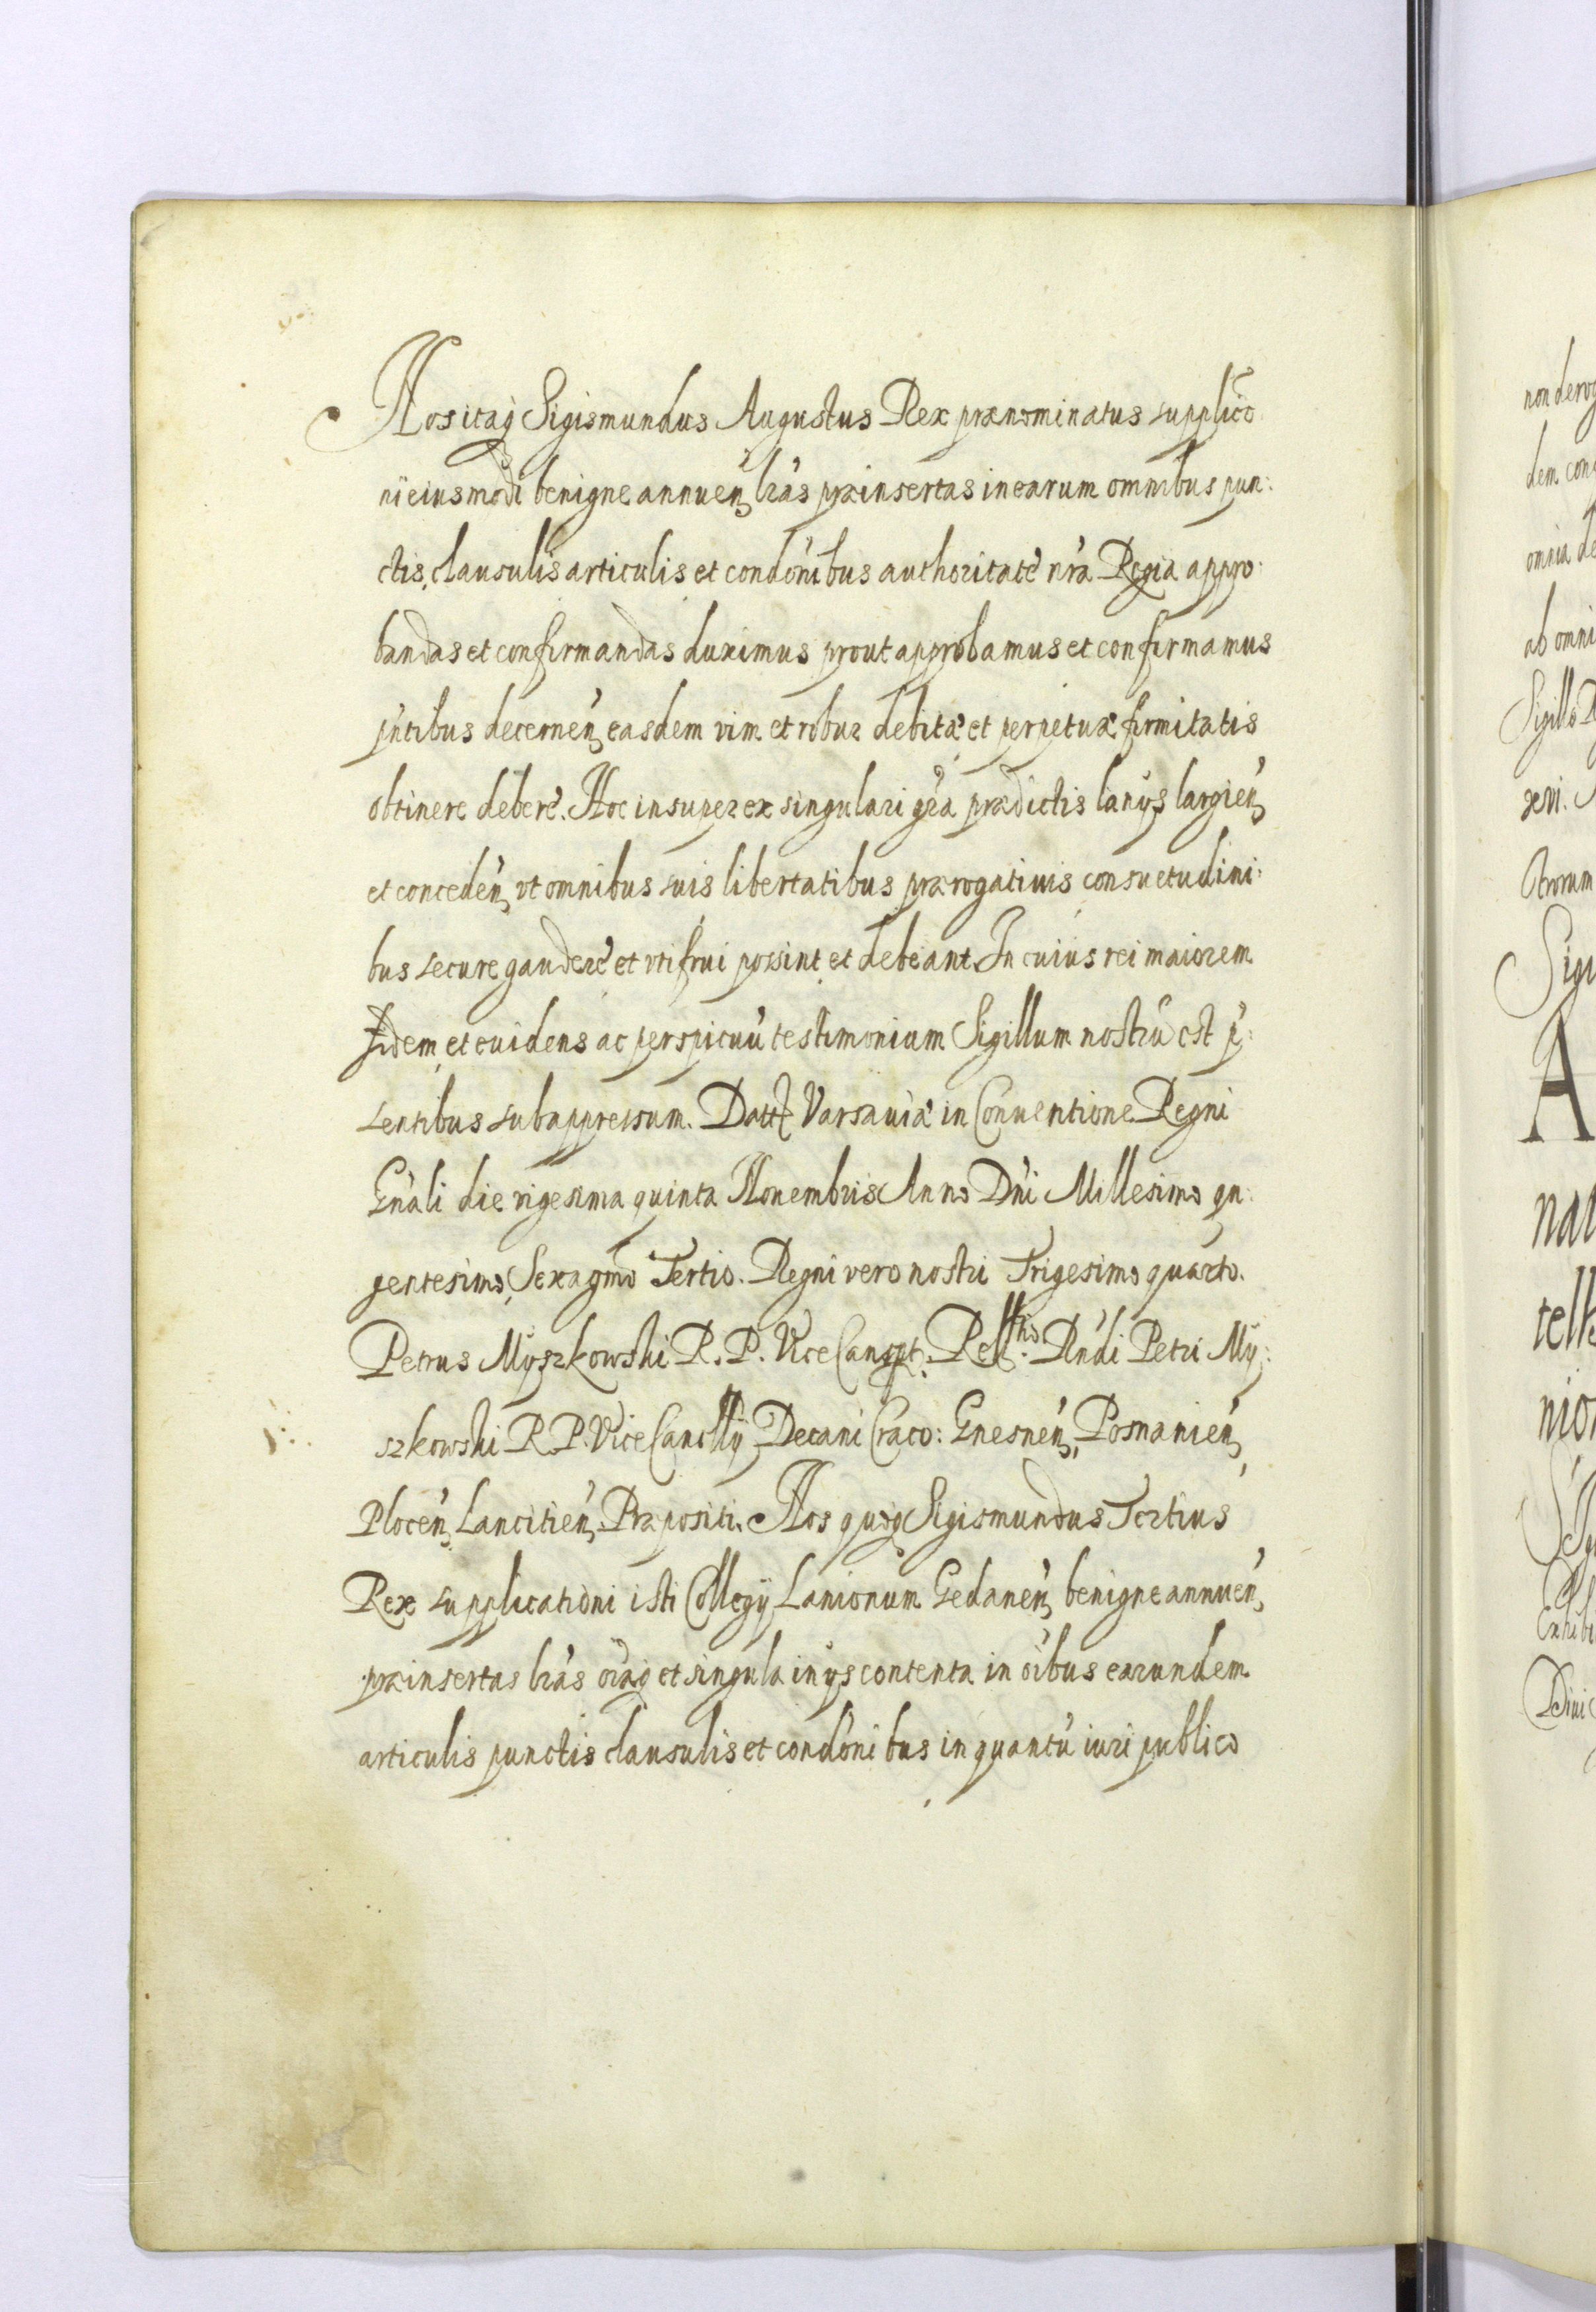 Nos itaq Sigismundus Augustus Rex prænominatus supplico
ni eiusmodi benigne annuen, lrás præinsertas in earum omnibus pun:
ctis, clausulis articulis et condónibus authoritate nrá Regia appro:
bandas et confirmandas duximus prout approbamus et confirmamus
pńtibus decernen, easdem vim et robur debitæ et perpetuæ firmitatis
obtinere debere. Hoc insuper ex singulari grá prædictis lanys largien,
et conceden, vt omnibus suis libertatibus prærogatiuis consuetudini:
bus secure gaudere et vti frui possint et debeant. In cuius rei maiorem
fidem et euidens ac perspicuú testimonium Sigillum nostrú est p:
sentibus subappressum. Datt Varsauiæ in Conuentione Regni
Gnáli die vigesima quinta Nouembris Anno Dńi Millesimo qn:
gentesimo, Sexagmo Tertio. Regni vero nostri Trigesimo quarto.
Petrus Myszkowski R. P. ViceCancpt. Rell:tio Rńdi Petri My:
szkowski R. P. ViceCancllÿ Decani Craco: Gnesnen, Posnanien,
Plocen, Lancitien, Præpositi. Nos quoq Sigismundus Tertius
Rex supplicationi isti Collegÿ Lanionum Gedanen, benigne annuen,
præinsertas lrás oiáq et singula in ÿs contenta in oíbus earundem
articulis punctis clausulis et condónibus in quantú iuri publico
non derog
dem con
omnia de
ab omni
Sigillo
xcvi.
Sigi
A
nat
telk
nio